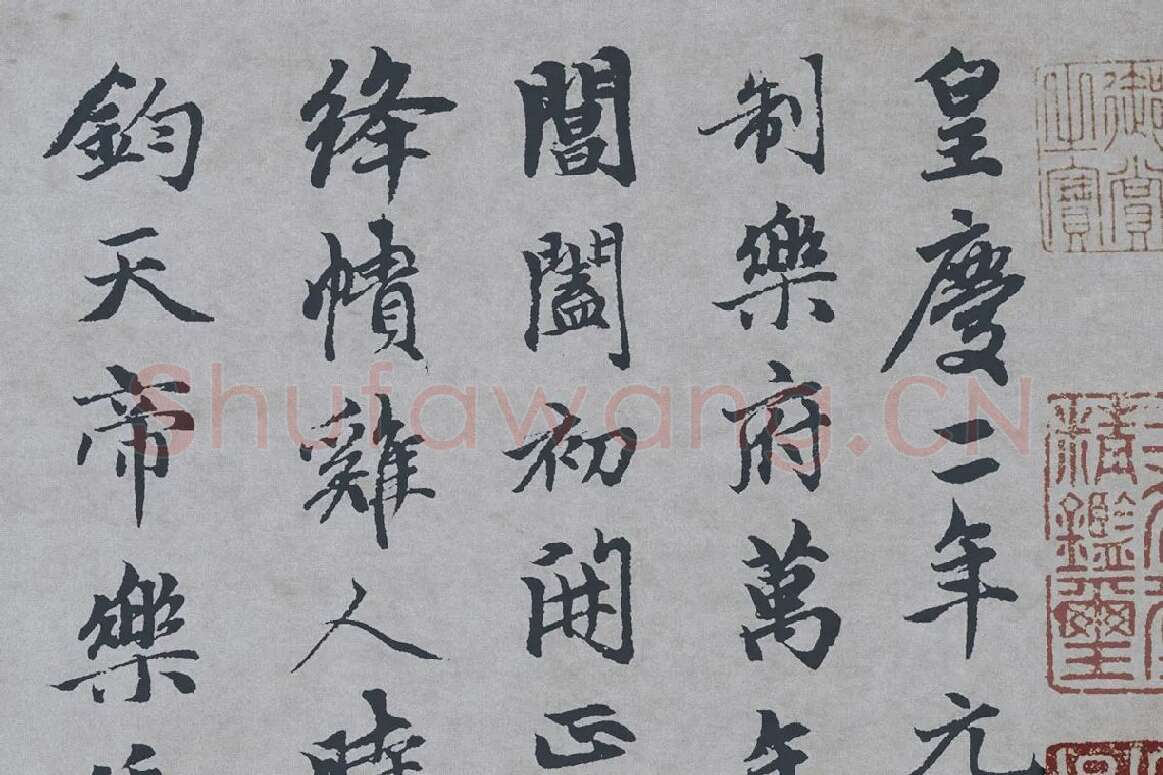 皇慶二年元
制樂府萬年
閶闔初開正
絳幘雞人
鈞天帝樂
Shufawang.CN